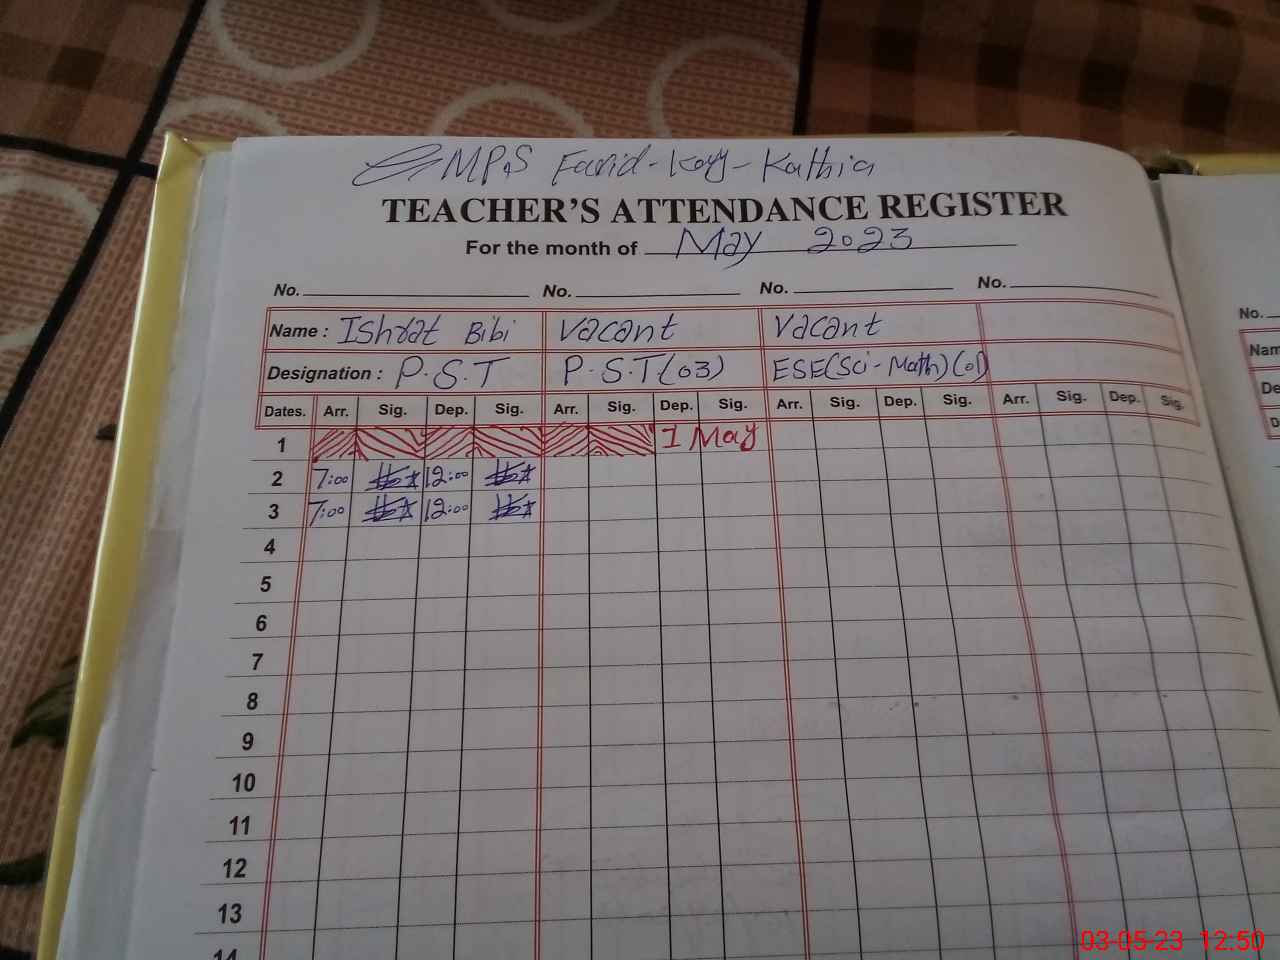 GMPS Farid-Koy-Kathia
TEACHER'S ATTENDANCE REGISTER
For the month of May 2023
No. No. No. No.
Name : Ishrat Bibi Vacant Vacant
Designation : P.S.T P.S.T(03) ESE(Sci-Math)(01)
Dates. Arr. Sig. Dep. Sig. Arr. Sig. Dep. Sig. Arr. Sig. Dep. Sig. Arr. Sig. Dep. Sig.
1 1 May
2 7:00 12:00
3 7:00 12:00
4
5
6
7
8
9
10
11
12
13
14
No.
Nam
De
D
03-05-23 12:50